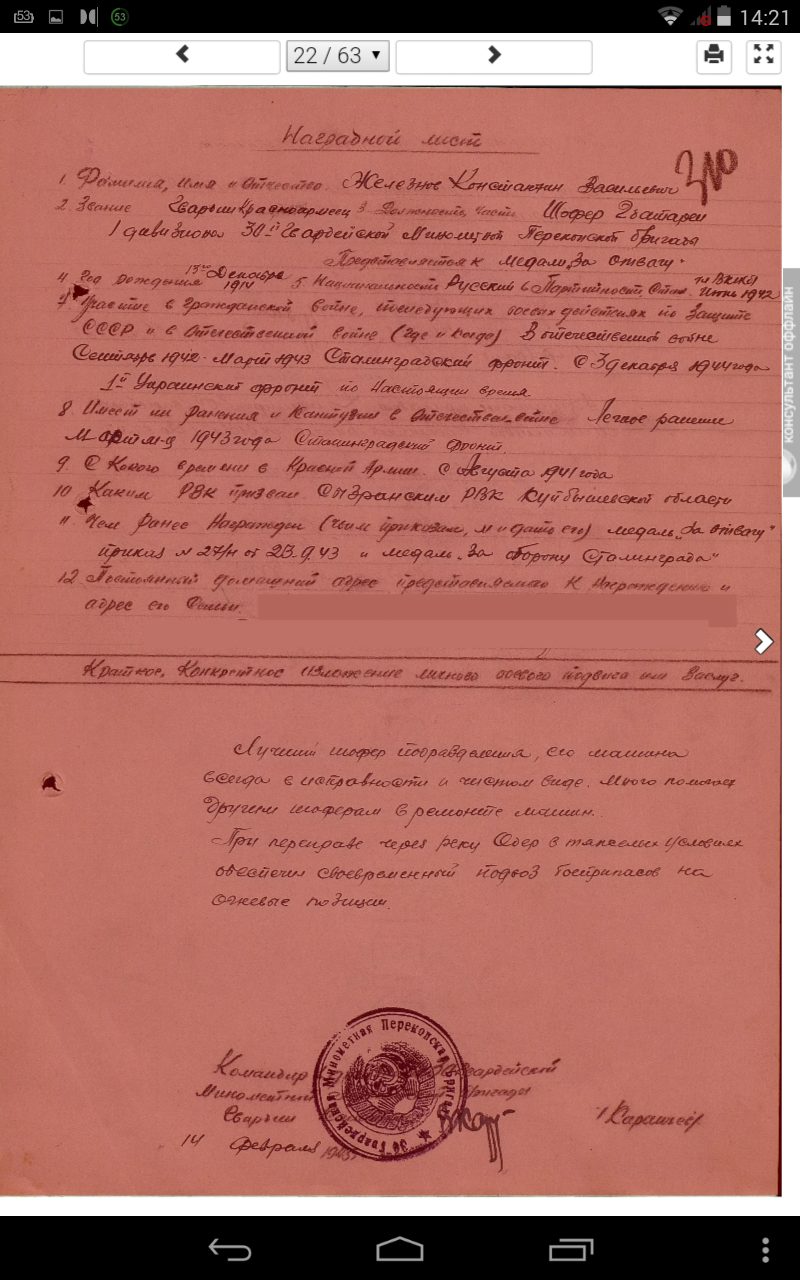 53
53
14:21
22 / 63
Наградной лист
1. Фамилия, имя и Отчество. Железнов Константин Васильевич
2. Звание Гвардии Красноармеец 3. Должность, часть Шофер 2 батареи
1 дивизиона 30й Гвардейской Минометной Перекопской бригады
Представляется к медали "За отвагу"
4 Год рождения 13го Декабря 1914 5. Национальность Русский 6 Партийность Июнь 1942
7 Участие в Гражданской войне, последующих боевых действиях по Защите
СССР и в Отечественной войне (где и когда) В отечественной войне
Сентябрь 1942 - Март 1943 Сталинградский фронт. С 3 декабря 1944 года
1й Украинский фронт по Настоящее время
8. Имеет ли ранения и Контузии в Отечествен. войне Легкое ранение
1943 года Сталинградский Фронт.
9. С Какого времени в Красной Армии. С Августа 1941 года
10. Каким РВК призван. Сызранским РВК Куйбышевской области
11. Чем Ранее Награжден (чьим приказом, № и дата его) медаль "За отвагу"
приказ № 27/н от 43 и медаль "За оборону Сталинграда"
12 Постоянный домашний адрес представляемого К Награждению и
адрес его Семьи.
Краткое, Конкретное изложение личного боевого подвига или Заслуг.
Лучший шофер подразделения, его машина
всегда в исправности и чистом виде. Много помогает
другим шоферам в ремонте машин.
При переправе через реку Одер в тяжелых условиях
обеспечил своевременный подвоз боеприпасов на
огневые позиции.
Командир Гвардейской
Минометной бригады
Гвардии
14 Февраля
30 Гвардейская Минометная Перекопская Бригада
консультант оффлайн